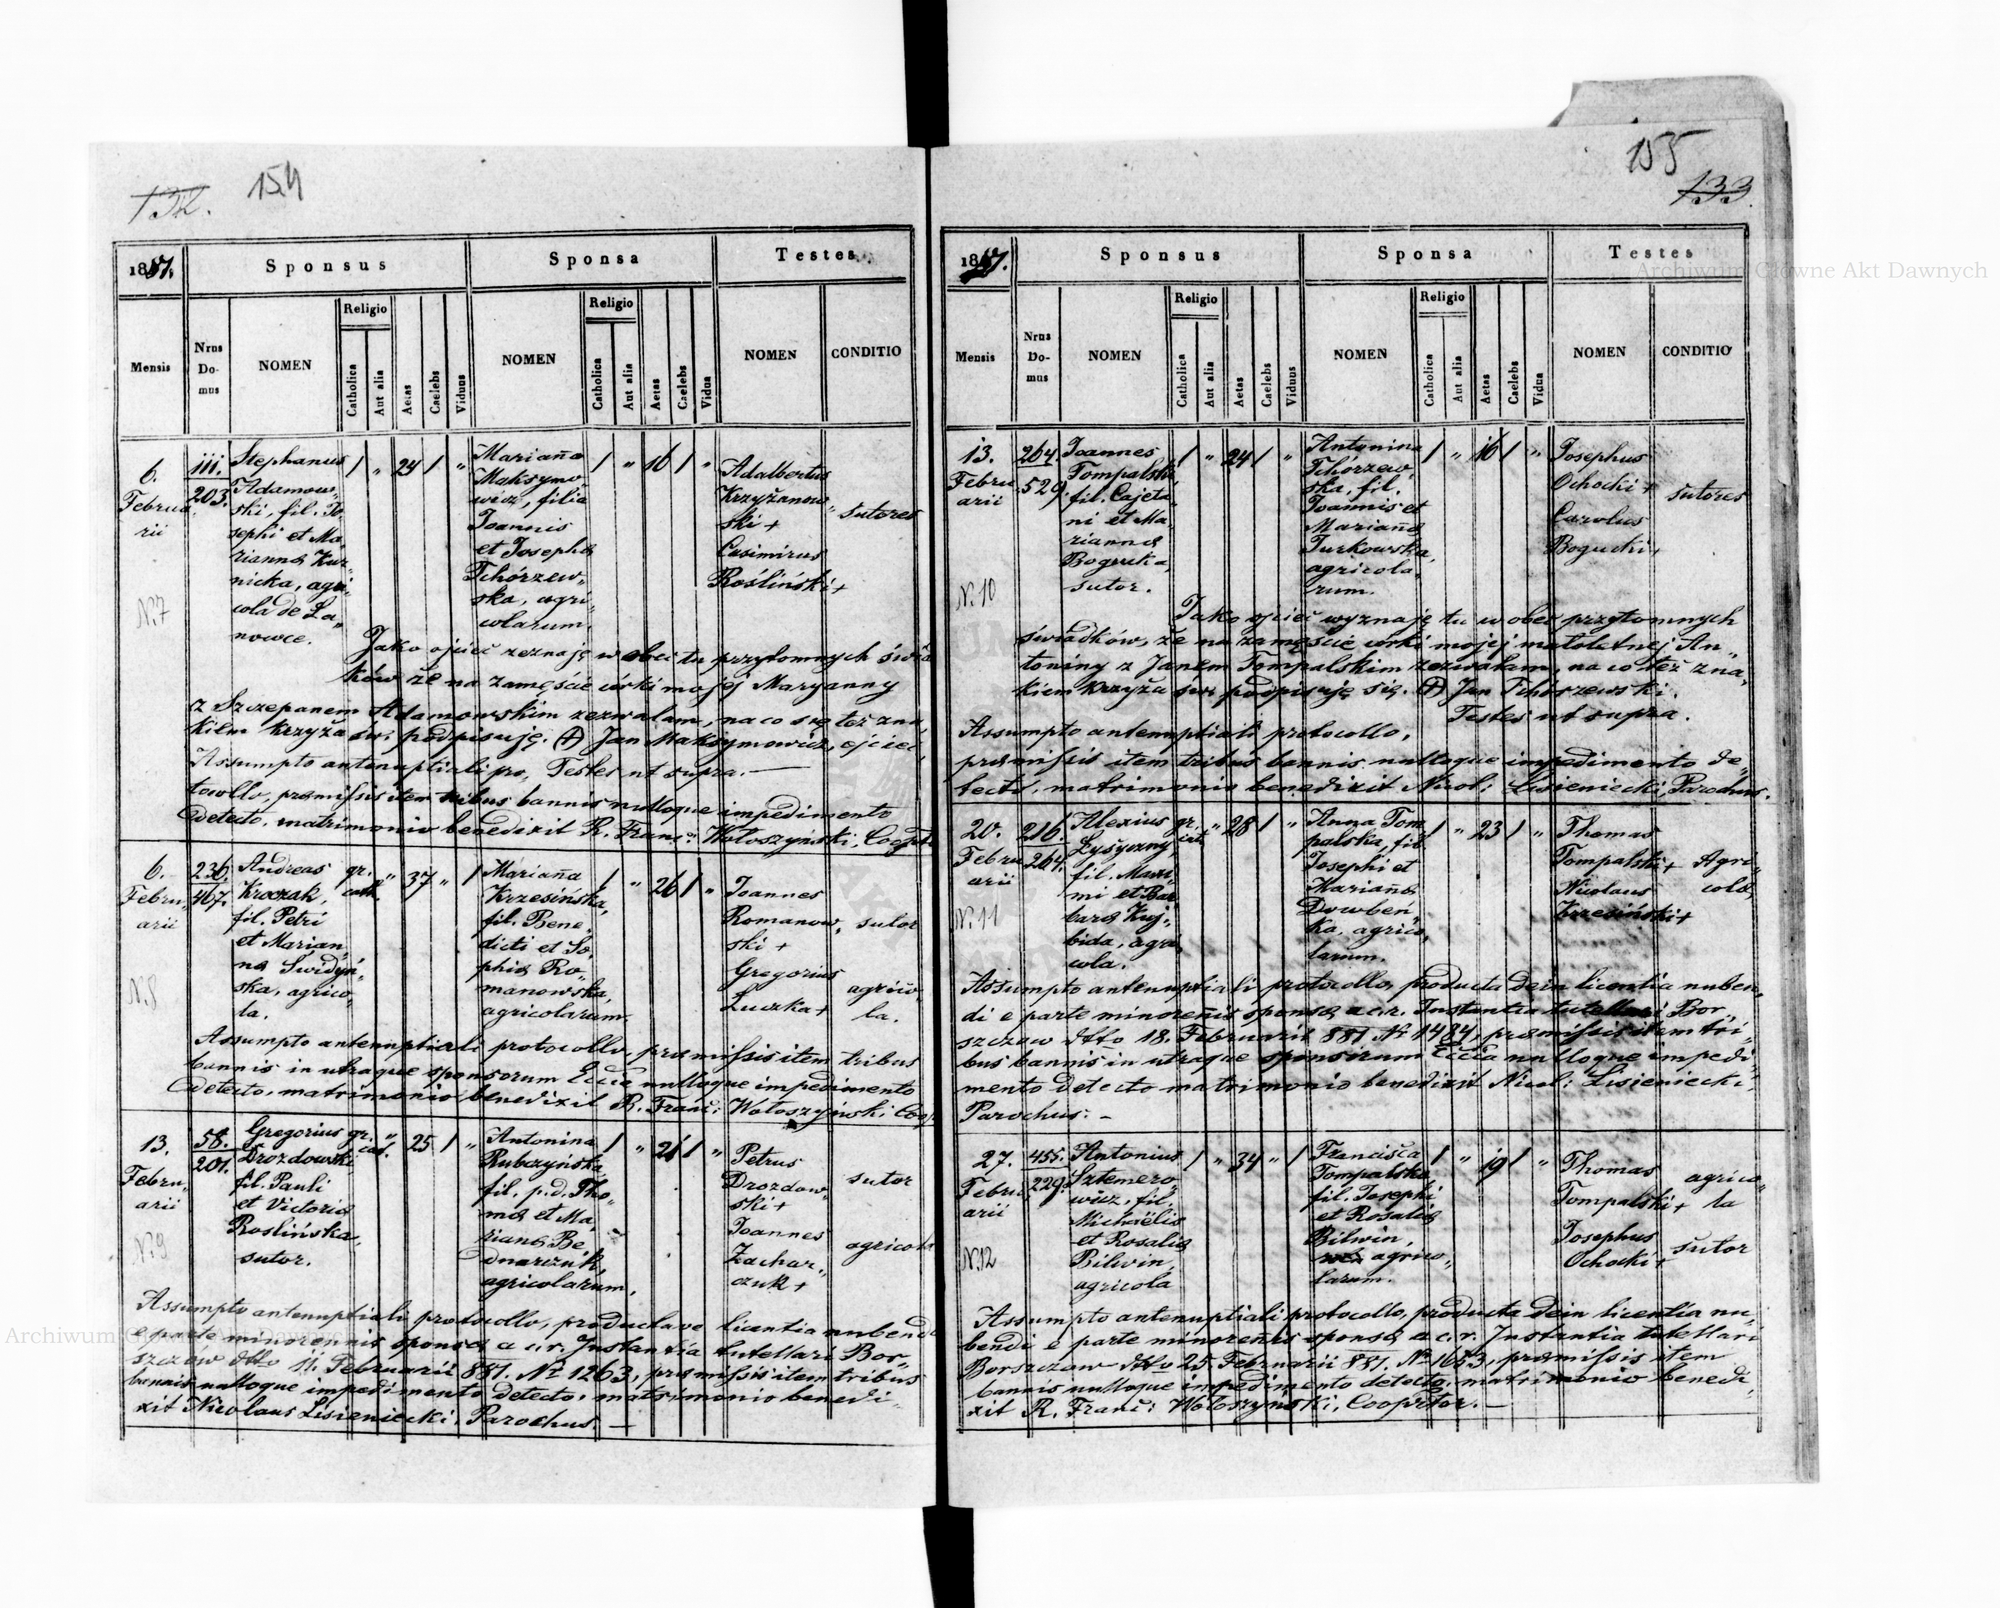 132.
154
1881.
Sponsus
Sponsa
Testes
Mensis
Nrus
Do-
mus
NOMEN
Religio
Catholica
Aut alia
Aetas
Caelebs
Viduus
NOMEN
Religio
Catholica
Aut alia
Aetas
Caelebs
Vidua
NOMEN
CONDITIO
6.
Februa
rii
N.7
111.
203.
Stephanus
Adamow„
ski, fil. Jo„
sephi et Ma„
rianna Kur„
nicka, agri„
cola de La„
nowce.
/ „ 24 / „
Marianna
Maksymo
wicz, filia
Joannis
et Josepha
Tchórzew„
ska, agri„
colarum.
/ „ 16 / „
Adalbertus
Krzyżanow„
ski +
Casimirus
Rośliński +
sutores
Jako ojciec zeznaję w obec tu przytomnych świa
ków że na zamęście córki mojej Maryanny
z Szczepanem Adamowskim zezwalam, na co się też zna„
kiem krzyża św: podpisuję. (+) Jan Maksymowicz, ojciec
Assumpto antenuptiali pro„ Testes ut supra. —
tocollo, præmissis item tribus bannis nulloque impedimento
detecto, matrimonio benedixit R. Franc: Wołoszyński, Coop
6.
Febru„
arii
N.8
236.
467.
Andreas
Kroczak,
fil. Petri
et Marian„
na Swidyń„
ska, agrico„
la.
gr.
cath.
„ 37 „ /
Marianna
Krzesińska,
fil. Bene„
dicti et So„
phia Ro„
manowska,
agricolarum.
/ „ 26 / „
Joannes
Romanow„
ski +
Gregorius
Luczka +
sutor
agrico„
la.
Assumpto antenuptiali protocollo, præmissis item tribus
bannis in utraque sponsorum Ecclia nulloque impedimento
detecto, matrimonio benedixit R. Franc: Wołoszyński, Coop
13.
Febru„
arii
N.9
58.
201.
Gregorius
Drozdowski
fil. Pauli
et Victoria
Roslińska,
sutor.
gr.
cat.
„ 25 / „
Antonina
Rubczyńska
fil. p.d. Tho„
ma et Ma„
rianna Be„
dnarczuk,
agricolarum.
/ „ 21 / „
Petrus
Drozdow„
ski +
Joannes
Zachar„
czuk +
sutor
agricola
Assumpto antenuptiali protocollo, producta vo licentia nubendi
e parte minorennis sponsæ a c.r. Instantia tutellari Bor„
szczów dtto 11. Februarii 881. No 1263, præmissis item tribus
bannis nulloque impedimento detecto, matrimonio benedi„
xit Nicolaus Lisieniecki, Parochus. —
155
133
1881.
Sponsus
Sponsa
Testes
Mensis
Nrus
Do-
mus
NOMEN
Religio
Catholica
Aut alia
Aetas
Caelebs
Viduus
NOMEN
Religio
Catholica
Aut alia
Aetas
Caelebs
Vidua
NOMEN
CONDITIO
13.
Febru
arii
N.10
264
529.
Joannes
Tompalski,
fil. Cajeta„
ni et Ma„
rianna
Bogucka,
sutor.
/ „ 24 / „
Antonina
Tchórzew„
ska, fil.
Joannis et
Marianna
Turkowska,
agricola„
rum.
/ „ 16 / „
Josephus
Ochocki +
Carolus
Bogucki +
sutores
Jako ojciec wyznaję tu w obec przytomnych
świadków, że na zamęście córki mojej małoletnej An„
toniny z Janem Tompalskim zezwalam, na co też zna„
kiem krzyża św: podpisuję się. (+) Jan Tchórzewski.
Testes ut supra.
Assumpto antenuptiali protocollo,
præmissis item tribus bannis nulloque impedimento de„
tecti, matrimonio benedixit Nicol: Lisieniecki, Parochus.
20.
Febru
arii
N.11
216.
264.
Alexius
Łysyczny,
fil. Maxi„
mi et Bar
bara Kuj„
bida, agri„
cola.
gr.
cat.
„ 28 / „
Anna Tom
palska, fil.
Josephi et
Marianna
Dowbeń„
ka, agrico„
larum.
/ „ 23 / „
Thomas
Tompalski +
Nicolaus
Krzesiński +
Agri„
colæ
Assumpto antenuptiali protocollo, producta dein licentia nuben„
di e parte minorennis sponsæ a c.r. Instantia tutellari Bor„
szczow dtto 18. Februarii 881. No 1484, præmissis item tri„
bus bannis in utraque sponsorum Ecclia nulloque impedi„
mento detecto matrimonio benedixit Nicol: Lisieniecki,
Parochus. —
27.
Febru
arii
N.12
455.
229.
Antonius
Sztemero„
wicz, fil.
Michaëlis
et Rosalia
Bilwin,
agricola
/ „ 34 „ /
Francisca
Tompalska
fil. Josephi
et Rosalia
Bilwin,
agrico„
larum.
/ „ 19 / „
Thomas
Tompalski +
Josephus
Ochocki +
agrico„
la
sutor
Assumpto antenuptiali protocollo, producta dein licentia nu„
bendi e parte minorennis sponsæ a c.r. Instantia tutellari
Borszczow dtto 25. Februarii 881. No 1653, præmissis item
bannis nulloque impedimento detecto, matrimonio benedi„
xit R. Franc: Wołoszyński, Cooprtor. —
Archiwum Główne Akt Dawnych
Archiwum Główne Akt Dawnych